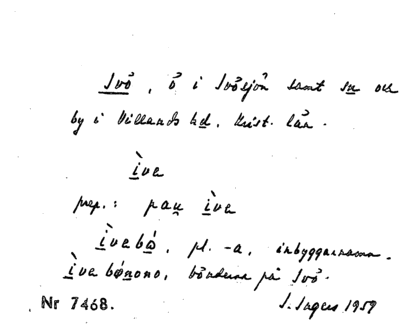 Ivö, ö i Ivösjön samt sn och
by i Villands hd, Krist. län.
ìva
prep.: pau ìva
ìvabó, pl. -a, inbyggarnamn.
ìva bónono, bönderna på Ivö.
Nr 7468. I. Ingers 1959